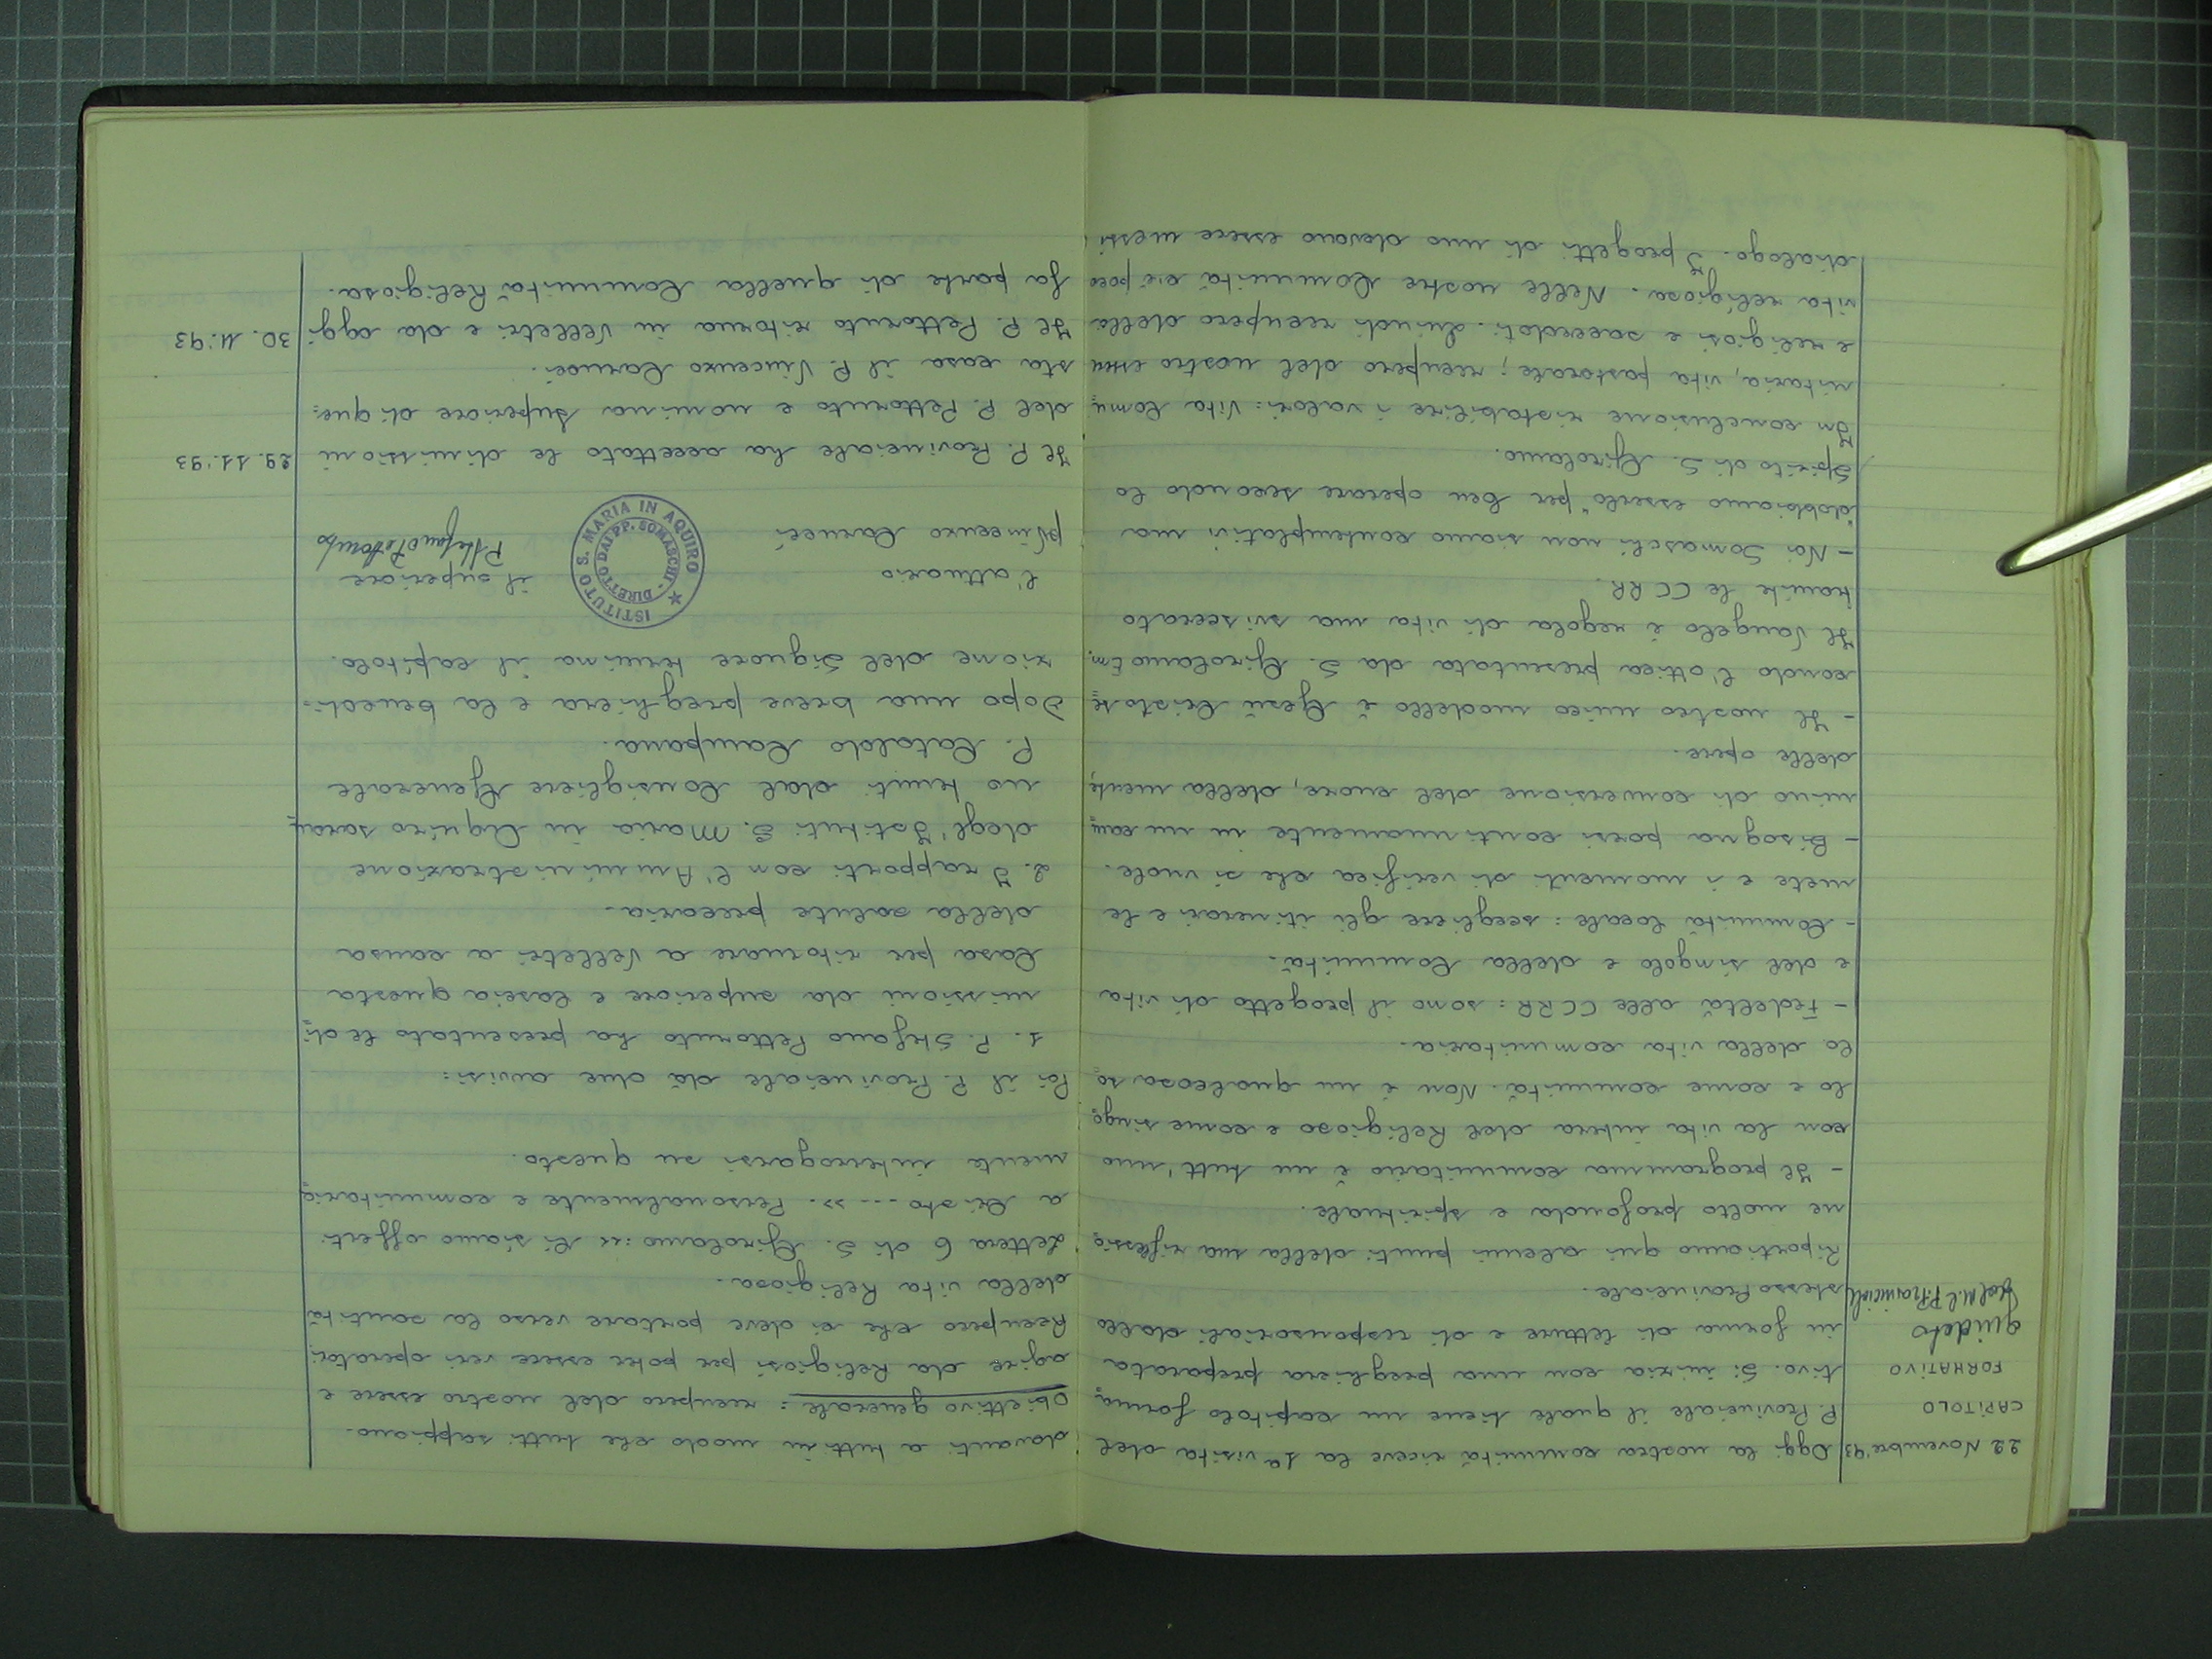 22 Novembre '93
CAPITOLO
FORMATIVO
guidato
dal M.R. P. Provinciale
Oggi la nostra comunità riceve la 1ª visita del
P. Provinciale il quale tiene un capitolo forma
tivo. Si inizia con una preghiera preparata
in forma di letture e di responsoriali dallo
stesso Provinciale.
Riportiamo qui alcuni punti della sua riflessio
ne molto profonda e spirituale.
- Il programma comunitario è un tutt'uno
con la vita intera del Religioso e come singo
lo e come comunità. Non è un qualcosa so
lo della vita comunitaria.
- Fedeltà alle CCRR: sono il progetto di vita
e del singolo e della Comunità.
- Comunità locale: scegliere gli itinerari e le
mete e i momenti di verifica che si vuole.
- Bisogna porsi continuamente in un cam
mino di conversione del cuore, della mente,
delle opere.
- Il nostro unico modello è Gesù Cristo se
condo l'ottica presentata da S. Girolamo Em.
Il Vangelo è regola di vita ma sviscerato
tramite le CCRR.
- Noi Somaschi non siamo contemplativi ma
"dobbiamo esserlo" per ben operare secondo lo
Spirito di S. Girolamo.
In conclusione ristabilire i valori: Vita Comu
nitaria, vita pastorale; recupero del nostro essere
e religiosi e sacerdoti. Quindi recupero della
vita religiosa. Nelle nostre Comunità c'è poco
dialogo. I progetti di uno devono essere messi
davanti a tutti in modo che tutti sappiano.
Obiettivo generale: recupero del nostro essere e
agire da Religiosi per poter essere veri operatori
Recupero che ci deve portare verso la santità
della vita Religiosa.
Lettera 6 di S. Girolamo: << Ci siamo offerti
a Cristo ... >>. Personalmente e comunitaria
mente interrogarsi su questo.
Poi il P. Provinciale dà due avvisi:
1. P. Stefano Pettoruto ha presentato le di
missioni da superiore e lascia questa
Casa per ritornare a Velletri a causa
della salute precaria.
2. I rapporti con l'Amministrazione
degl'Istituti S. Maria in Aquiro saran
no tenuti dal Consigliere Generale
P. Cataldo Campana.
Dopo una breve preghiera e la benedi=
zione del Signore termina il capitolo.
l'attuario
il superiore
p Vincenzo Carucci
P. Stefano Pettoruto
ISTITUTO S. MARIA IN AQUIRO
DIRETTO DAI PP. SOMASCHI
29.11.'93
Il P. Provinciale ha accettato le dimissioni
del P. Pettoruto e nomina Superiore di que=
sta casa il P. Vincenzo Carucci.
30.11.'93
Il P. Pettoruto ritorna in Velletri e da oggi
fa parte di quella Comunità Religiosa.